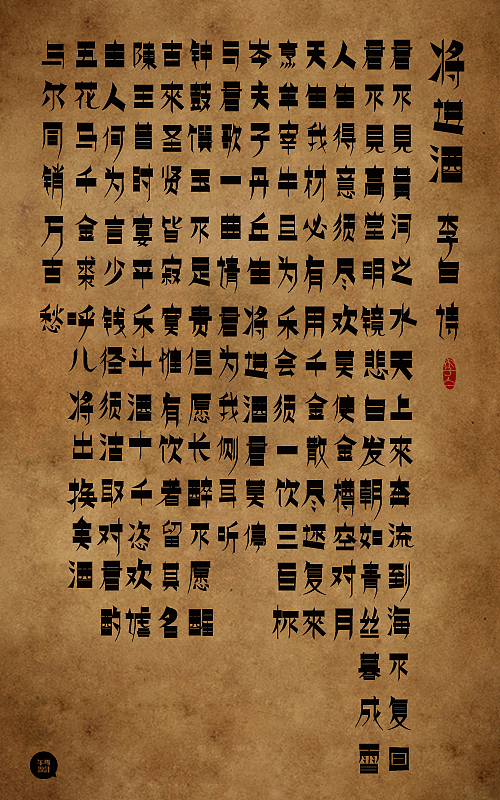 将进酒
李白诗
君不見黄河之水天上來奔流到海不复回
君不見高堂明镜悲白发朝如青丝暮成雪
人生得意须尽欢莫使金樽空对月
天生我材必有用千金散尽还复來
烹羊宰牛且为乐会须一饮三百杯
岑夫子丹丘生将进酒君莫停
与君歌一曲请君为我侧耳听
钟鼓馔玉不足贵但愿长醉不愿醒
古來圣贤皆寂寞惟有饮者留其名
陳王昔时宴平乐斗酒十千恣欢谑
主人何为言少钱径须沽取对君酌
五花马千金裘呼儿将出换美酒
与尔同销万古愁